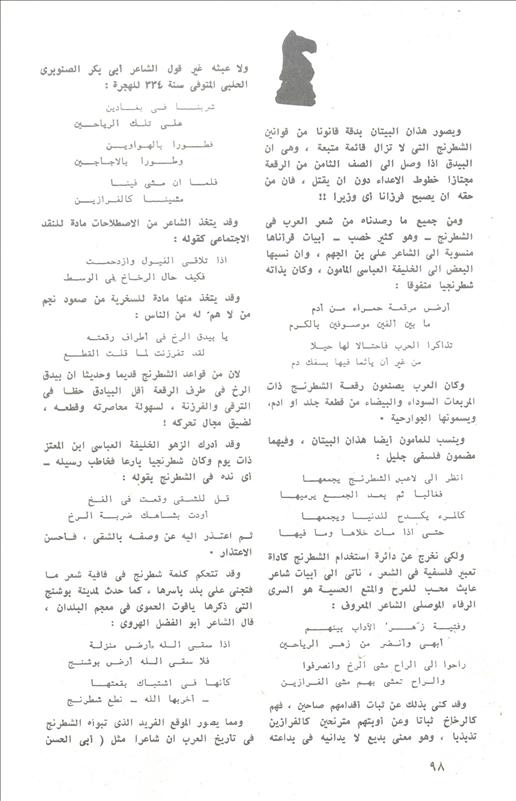 ويصور هذان البيتان بدقة قانونا من قوانين
الشطرنج التى لا تزال قائمة متبعة ، وهى ان
البيدق اذا وصل الى الصف الثامن من الرقعة
مجتازا خطوط الاعداء دون ان يقتل ، فان من
حقه ان يصبح فرزانا أى وزيرا !!
ومن جميع ما رصدناه من شعر العرب فى
الشطرنج ــ وهو كثير خصب ــ أبيات قرأناها
منسوبة الى الشاعر على بن الجهم ، وان نسبها
البعض الى الخليفة العباسى المأمون ، وكان بذاته
شطرنجيا متفوقا :
أرض مرقعة حمراء من أدم
ما بين ألفين موصوفين بالكرم
تذاكرا الحرب فاحتالا لها حيلا
من غير أن يأثما فيها بسفك دم
وكان العرب يصنعون رقعة الشطرنج ذات
المربعات السوداء والبيضاء من قطعة جلد او ادم،
ويسمونها الجوارحية ٠
وينسب للمأمون أيضا هذان البيتان ، وفيهما
مضمون فلسفى جليل :
انظر الى لاعب الشطرنج يجمعها
فغالبا ثم بعد الجمع يرميها
كالمرء يكدح للدنيا ويجمعها
حتى اذا مات خلاها وما فيها
ولكى نخرج عن دائرة استخدام الشطرنج كأداة
تعبير فلسفية فى الشعر ، نأتى الى أبيات شاعر
عابث محب للمرح والمتع الحسية هو السرى
الرفاء الموصلى الشاعر المعروف :
وفتية زهر الآداب بينهم
أبهى وأنضر من زهر الرياحين
راحوا الى الراح مشى الرخ وانصرفوا
والراح تمشى بهم مشى الفرازين
وقد كنى بذلك عن ثبات أقدامهم صاحين ، فهم
كالرخاخ ثباتا وعن أوبتهم مترنحين كالفرازين
تذبذبا ، وهو معنى بديع لا يدانيه فى بداعته
ولا عبثه غير قول الشاعر أبى بكر الصنوبرى
الحلبى المتوفى سنة ٣٣٤ للهجرة :
شربنا فى بغادين
على تلك الرياحين
فطورا بالهواوين
وطورا بالاجاجين
فلما ان مشى فينا
مشينا كالفرازين
وقد يتخذ الشاعر من الاصطلاحات مادة للنقد
الاجتماعى كقوله :
اذا تلاقى الفيول وازدحمت
فكيف حال الرخاخ فى الوسط
وقد يتخذ منها مادة للسخرية من صعود نجم
من لا هم له من الناس :
يا بيدق الرخ فى أطراف رقعته
لقد تفرزنت لما قلت القطع
لان من قواعد الشطرنج قديما وحديثا ان بيدق
الرخ فى طرف الرقعة أقل البيادق حظا فى
الترقى والفرزنة ، لسهولة معاصرته وقطعه ،
لضيق مجال تحركه !
وقد أدرك الزهو الخليفة العباسى ابن المعتز
ذات يوم وكان شطرنجيا بارعا فخاطب رسيله ــ
أى نده فى الشطرنج بقوله :
قل للشقى وقعت فى الفخ
أودت بشاهك ضربة الرخ
ثم اعتذر اليه عن وصفه بالشقى ، فأحسن
الاعتذار ٠
وقد تتحكم كلمة شطرنج فى قافية شعر ما
فتجنى على بلد بأسرها ، كما حدث لمدينة بوشنج
التى ذكرها ياقوت الحموى فى معجم البلدان ،
قال الشاعر أبو الفضل الهروى :
اذا سقى الله أرض منزلة
فلا سقى الله أرض بوشنج
كأنها فى اشتباك بقعتها
ــ أخربها الله ــ نطع شطرنج
ومما يصور الموقع الفريد الذى تبوأه الشطرنج
فى تأريخ العرب ان شاعرا مثل ( أبى الحسن
٩٨